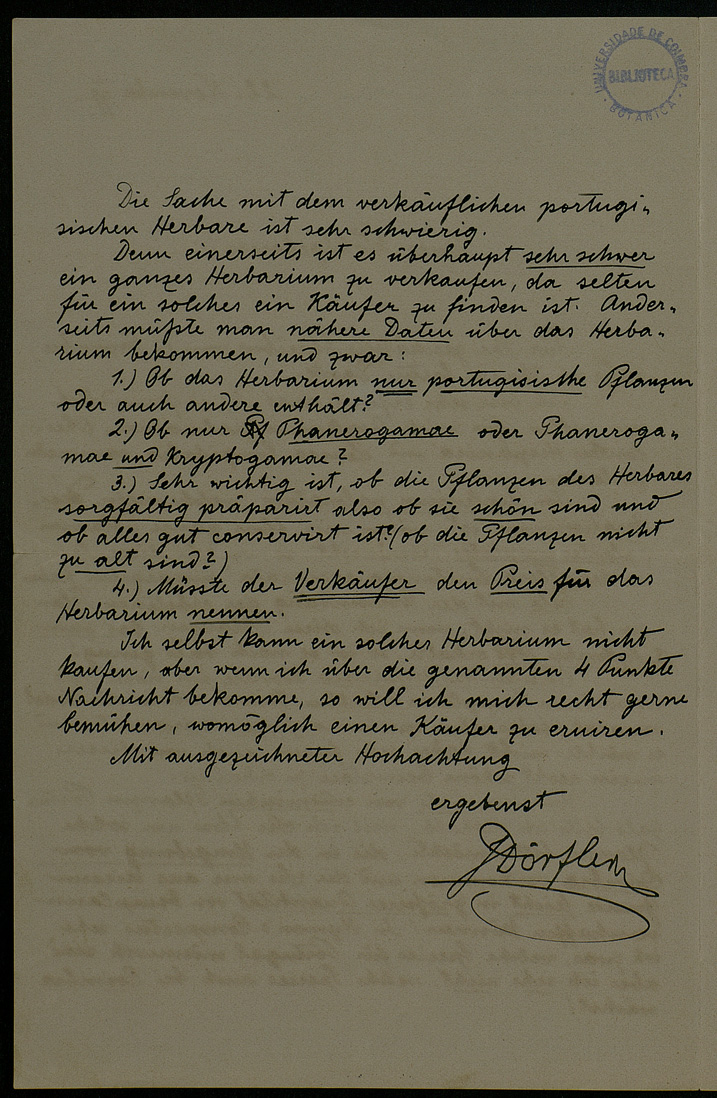 UNIVERSIDADE DE COIMBRA
BIBLIOTECA
BOTANICA
Die Sache mit dem verkäuflichen portugi-
sischen Herbare ist sehr schwierig.
Denn einerseits ist es überhaupt sehr schwer
ein ganzes Herbarium zu verkaufen, da selten
für ein solches ein Käufer zu finden ist. Ander-
seits müßte man nähere Daten über das Herba-
rium bekommen, und zwar:
1.) Ob das Herbarium nur portugisische Pflanzen
oder auch andere enthält?
2.) Ob nur Phanerogamae oder Phaneroga-
mae und Kryptogamae?
3.) Sehr wichtig ist, ob die Pflanzen des Herbares
sorgfältig präparirt also ob sie schön sind und
ob alles gut conservirt ist? (ob die Pflanzen nicht
zu alt sind?)
4.) Müsste der Verkäufer den Preis für das
Herbarium nennen.
Ich selbst kann ein solches Herbarium nicht
kaufen, aber wenn ich über die genannten 4 Punkte
Nachricht bekomme, so will ich mich recht gerne
bemühen, womöglich einen Käufer zu eruiren.
Mit ausgezeichneter Hochachtung
ergebenst
JDörfler